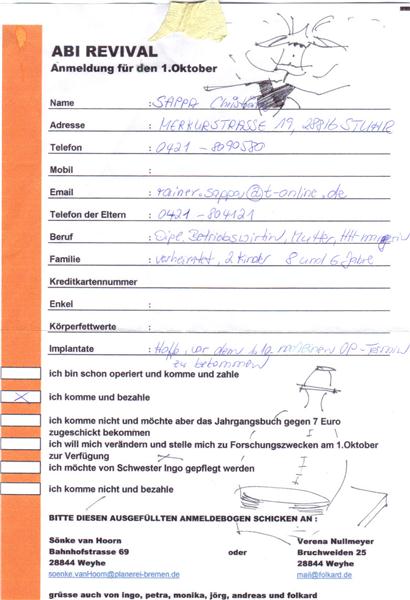 ABI REVIVAL
Anmeldung für den 1.Oktober
Name : SAPPA Christiane
Adresse : MERKURSTRASSE 19, 28816 STUHR
Telefon : 0421 - 8090580
Mobil :
Email : rainer.sappa@t-online.de
Telefon der Eltern : 0421 - 804121
Beruf : Dipl. Betriebswirtin, Mutter,
Familie : verheiratet, 2 Kinder 8 und 6 Jahre
Kreditkartennummer
Enkel :
Körperfettwerte :
Implantate : Hoffe, vor dem 1.10. noch einen OP-Termin
zu bekommen
ich bin schon operiert und komme und zahle
X ich komme und bezahle
ich komme nicht und möchte aber das Jahrgangsbuch gegen 7 Euro
zugeschickt bekommen
ich will mich verändern und stelle mich zu Forschungszwecken am 1.Oktober
zur Verfügung
ich möchte von Schwester Ingo gepflegt werden
ich komme nicht und bezahle
BITTE DIESEN AUSGEFÜLLTEN ANMELDEBOGEN SCHICKEN AN :
Sönke van Hoorn Verena Nullmeyer
Bahnhofstrasse 69 oder Bruchweiden 25
28844 Weyhe 28844 Weyhe
soenke.vanHoorn@planerei-bremen.de mail@folkard.de
grüsse auch von ingo, petra, monika, jörg, andreas und folkard